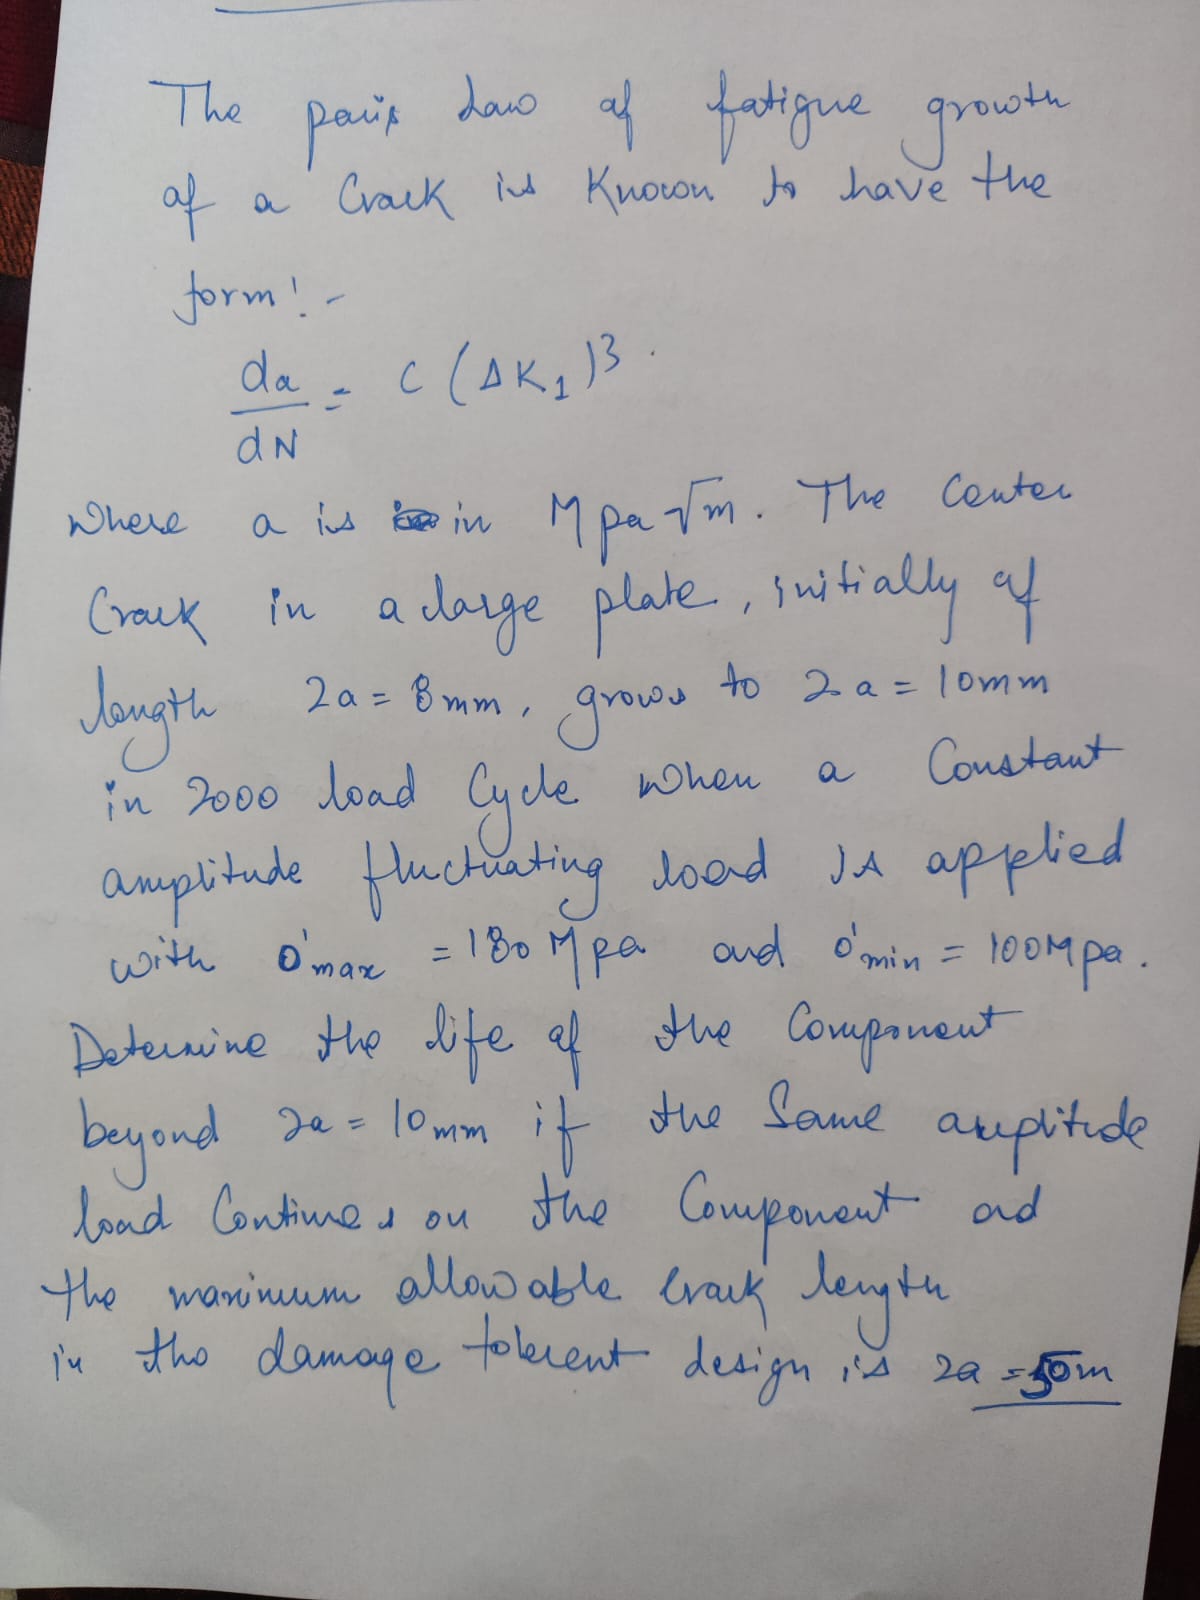 The paris Law of fatigue growth
of a Crack is Known to have the
form! -
da/dN = C (ΔK1)3.
Where a is in Mpa√m. The Center
Crack in a large plate, initially of
length 2a = 8mm, grows to 2a = 10mm
in 2000 load Cycle when a Constant
amplitude fluctuating load is applied
with σmax = 180 Mpa and σmin = 100Mpa.
Determine the life of the Component
beyond 2a = 10mm if the Same amplitude
load Continues on the Component ad
the maximum allowable Crack length
in the damage tolerent design is 2a = 50m